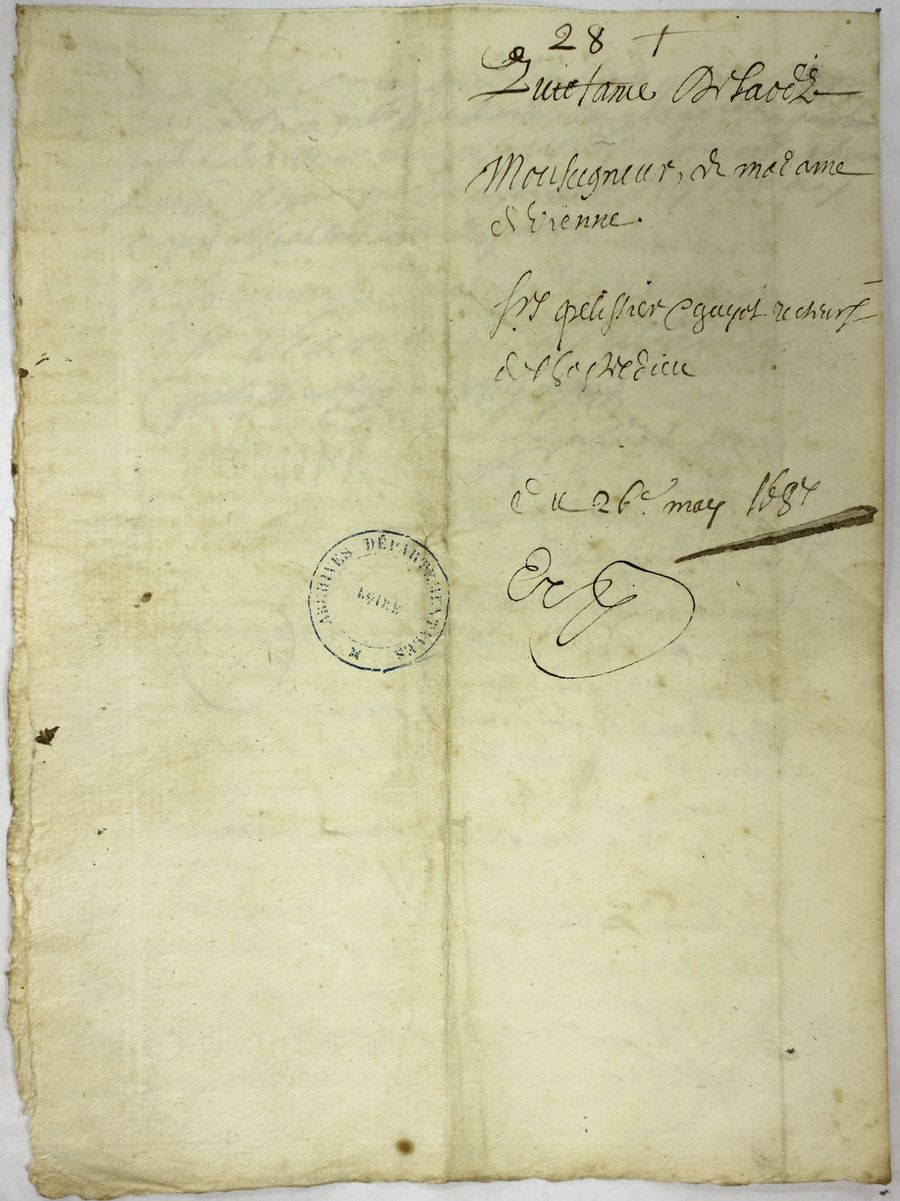 28 +
Quictame De laods
Monseigneur, de madame
de Vienne.
Srs pelissier & guyot recteurs
de lhostedieu
Du 26e may 1687
ARCHIVES DÉPARTEMENTALES
LOIRE